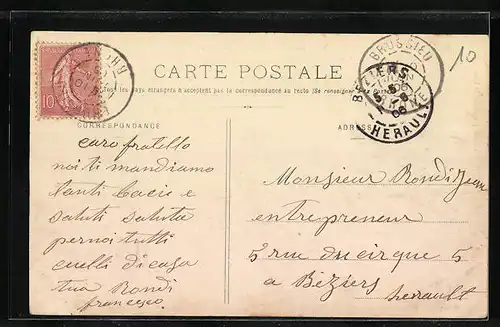 10
CARTE POSTALE
Tous les pays étrangers n'acceptent pas la correspondance au recto (Se renseigner
CORRESPONDANCE
ADRESSE
BRUSSIEU
BEZIERS
HERAULT
caro fratello
noi ti mandiamo
tanti bacie e
saluti saluta
pernoi tutti
quelli di casa
tua Rondi
francesco
Monsieur Rondi Jean
entrepreneur
5 rue du cirque 5
a Béziers
herault
10